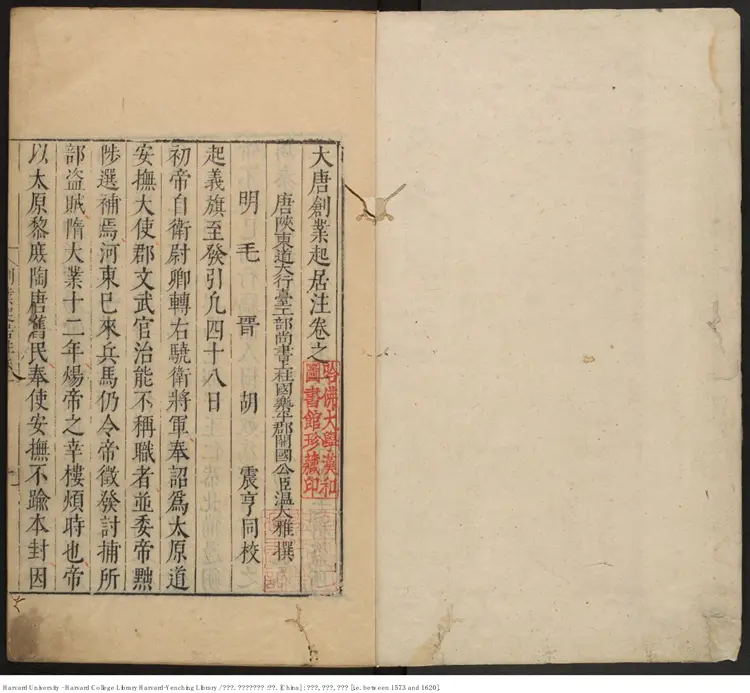 大唐創業起居注卷之
唐陝東道大行臺工部尚書上柱國樂平郡開國公臣温大雅撰
明 毛 晉 胡 震亨同校
起義旗至發引凡四十八日
初帝自衛尉卿轉右驍衛將軍奉詔爲太原道
安撫大使郡文武官治能不稱職者並委帝黜
陟選補焉河東已來兵馬仍令帝徵發討捕所
部盗賊隋大業十二年煬帝之幸樓煩時也帝
以太原黎庶陶唐舊民奉使安撫不踰本封因
哈佛大學漢和
圖書館珍藏印
Harvard University - Harvard College Library Harvard-Yenching Library / ???. ??????? :??. [China] : ???, ???, ??? [i.e. between 1573 and 1620].